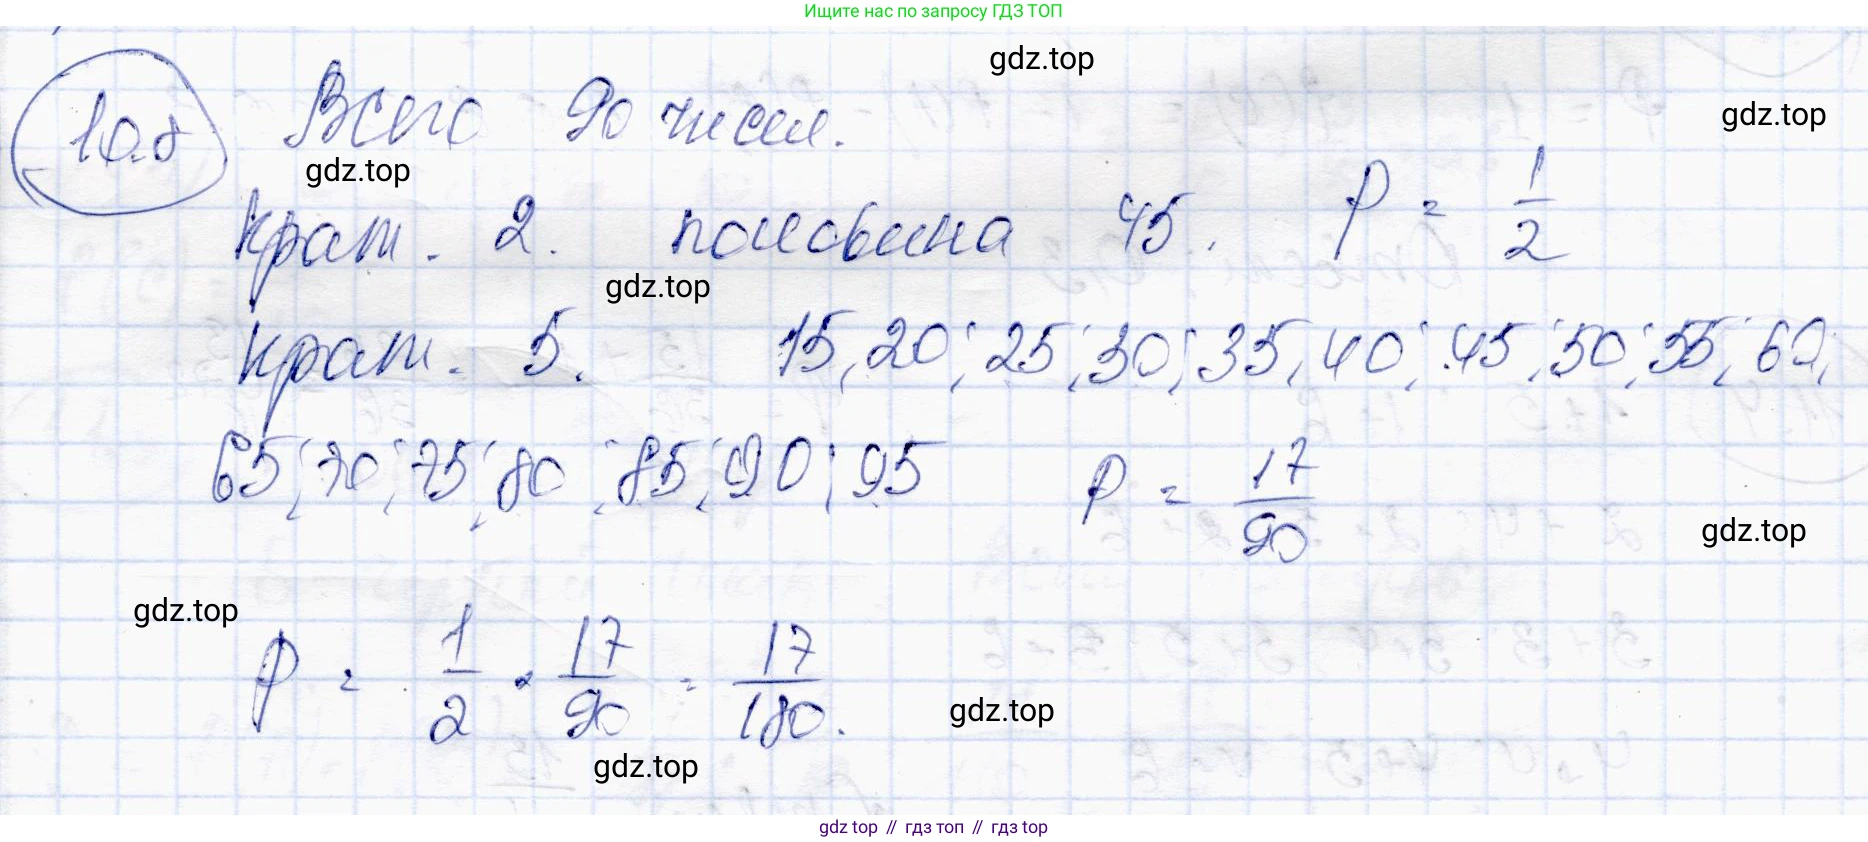 Ищите нас по запросу ГДЗ ТОП
gdz.top
10.8 Всего 90 чисел.
gdz.top
gdz.top
Крат. 2. половина 45. P = 1/2
gdz.top
Крат. 5. 15, 20; 25; 30; 35, 40; 45; 50; 55; 60;
65; 70; 75; 80; 85; 90; 95 P = 17/90
gdz.top
gdz.top
P = 1/2 · 17/90 = 17/180.
gdz.top
gdz.top
gdz top // гдз топ // гдз top